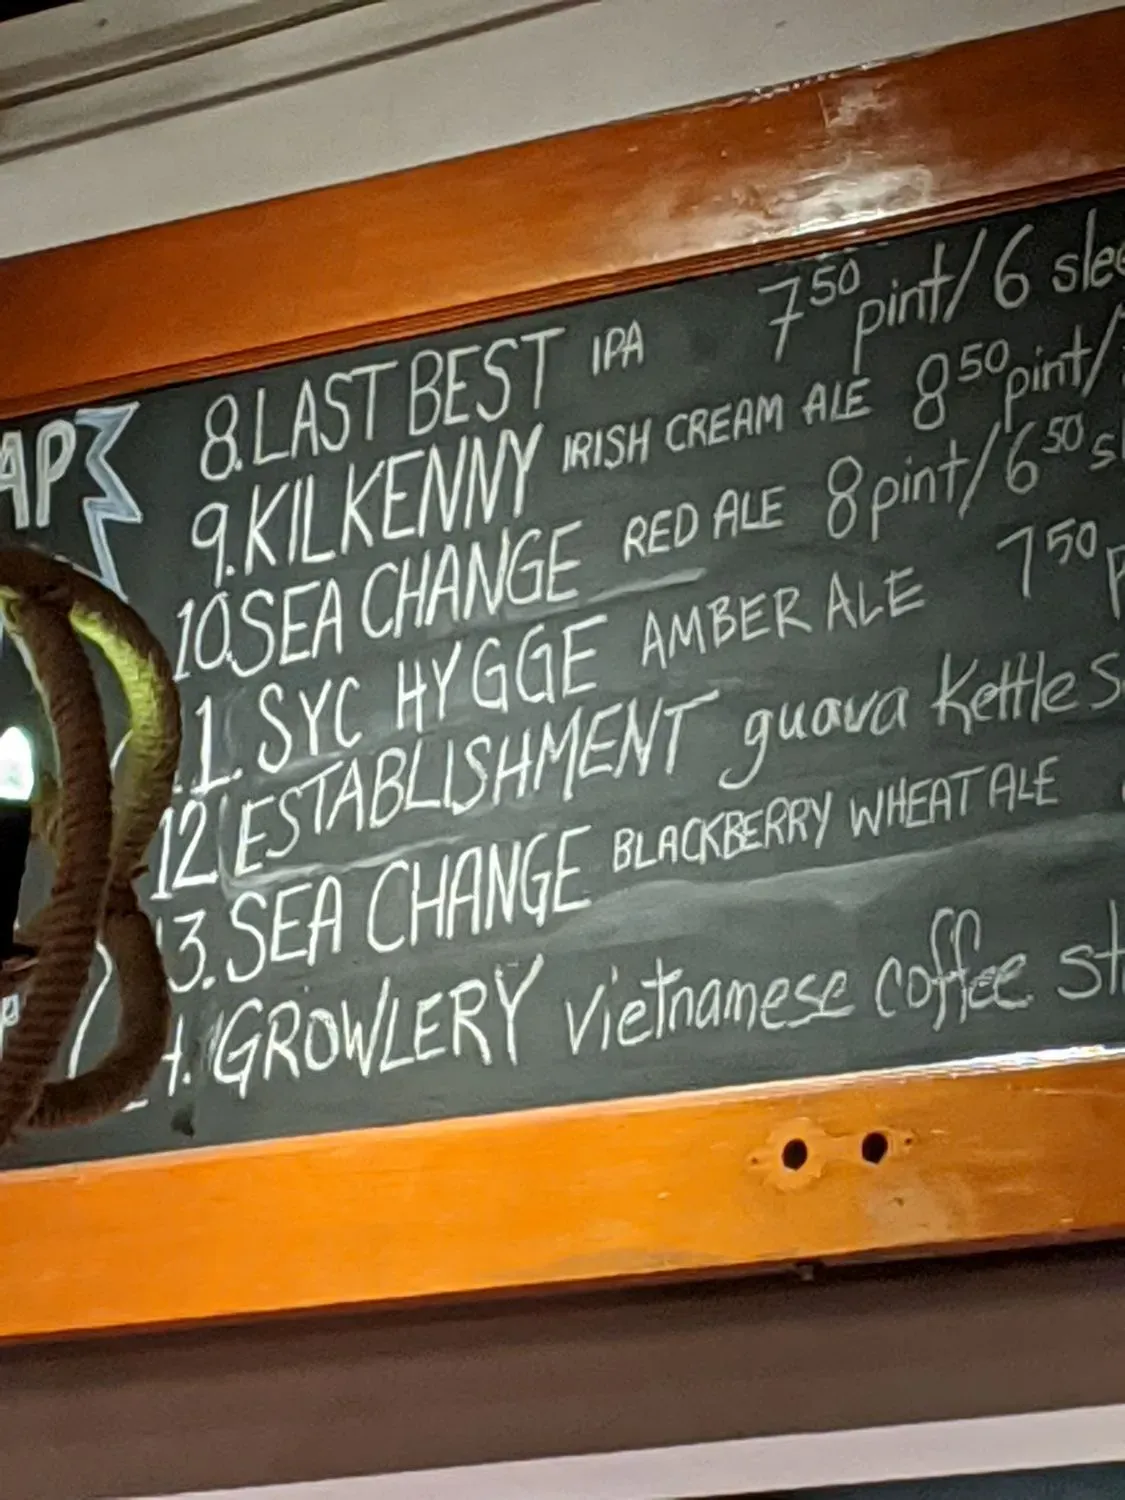 AP
8. LAST BEST IPA 7⁵⁰ pint/6 slee
9. KILKENNY IRISH CREAM ALE 8⁵⁰ pint/
10. SEA CHANGE RED ALE 8 pint/6⁵⁰ sl
1. SYC HYGGE AMBER ALE 7⁵⁰ p
12 ESTABLISHMENT guava Kettle S
13. SEA CHANGE BLACKBERRY WHEAT ALE
4. GROWLERY vietnamese coffee st